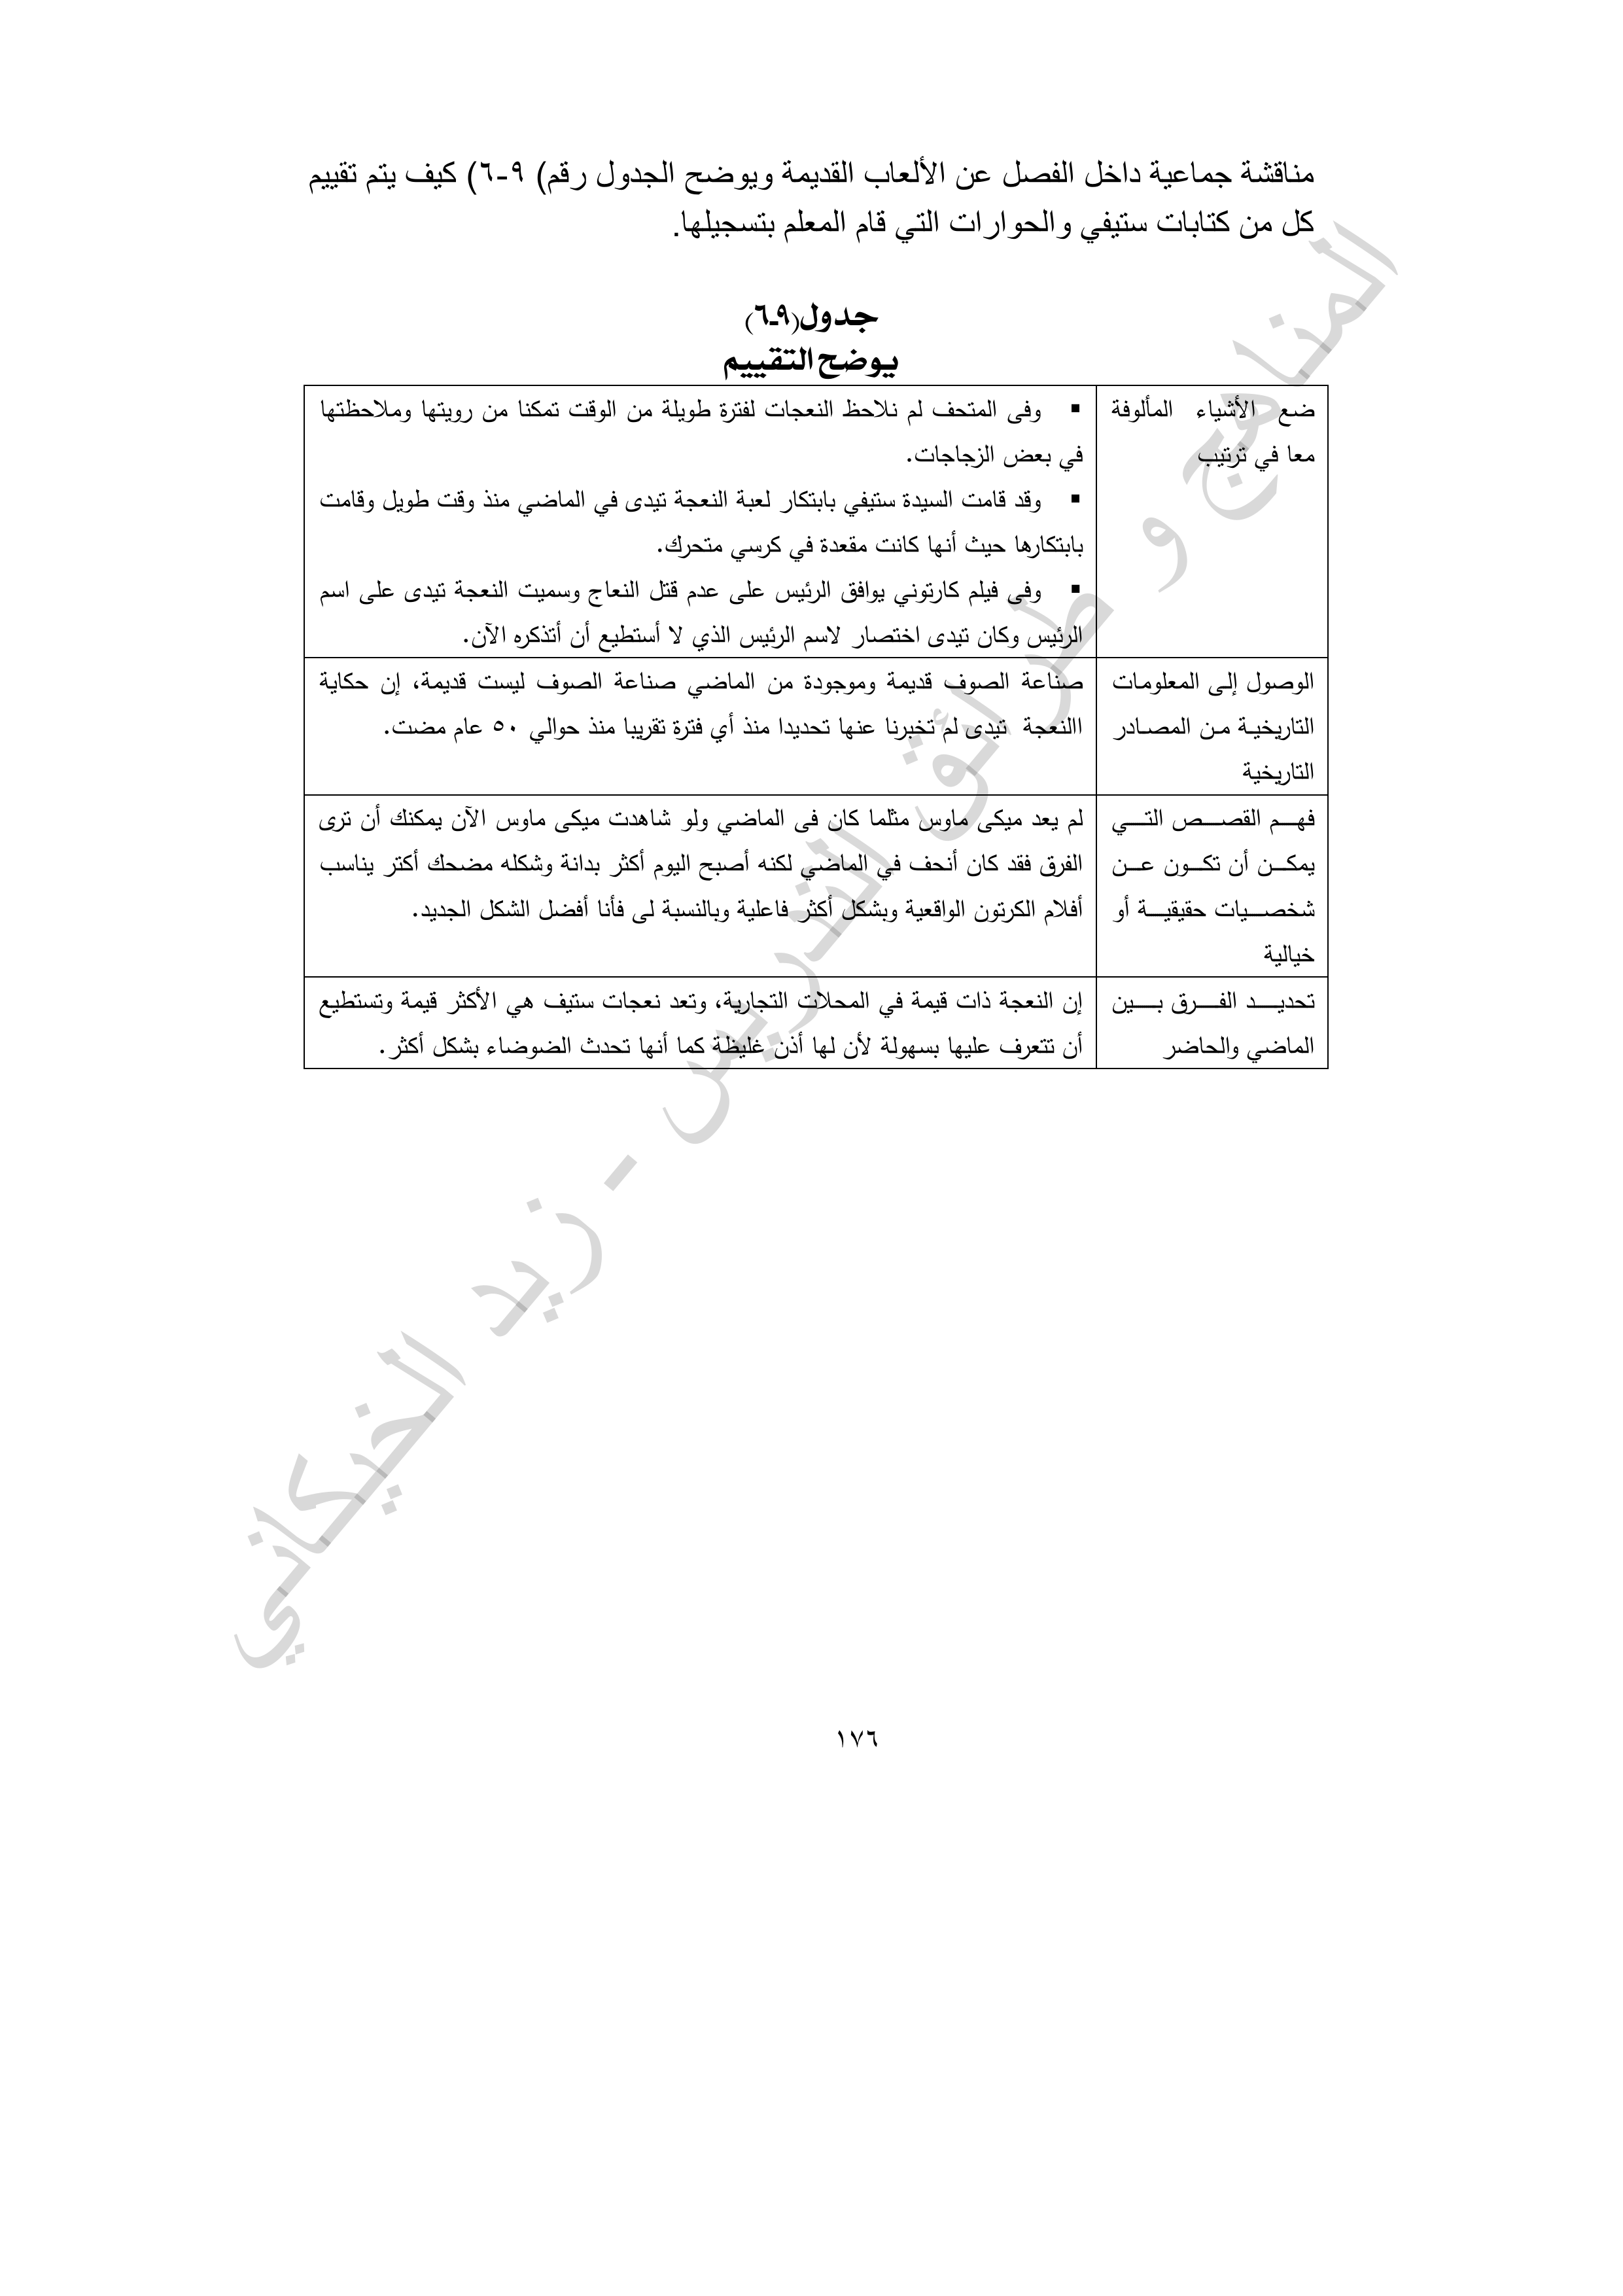 مناقشة جماعية داخل الفصل عن الألعاب القديمة ويوضح الجدول رقم) ٩-٦) كيف يتم تقييم
كل من كتابات ستيفي والحوارات التي قام المعلم بتسجيلها.
جدول(٩-٦)
يوضح التقييم
ضع الأشياء المألوفة
معا في ترتيب
▪ وفى المتحف لم نلاحظ النعجات لفترة طويلة من الوقت تمكنا من رويتها وملاحظتها
في بعض الزجاجات.
▪ وقد قامت السيدة ستيفي بابتكار لعبة النعجة تيدى في الماضي منذ وقت طويل وقامت
بابتكارها حيث أنها كانت مقعدة في كرسي متحرك.
▪ وفى فيلم كارتوني يوافق الرئيس على عدم قتل النعاج وسميت النعجة تيدى على اسم
الرئيس وكان تيدى اختصار لاسم الرئيس الذي لا أستطيع أن أتذكره الآن.
الوصول إلى المعلومات
التاريخية من المصادر
التاريخية
صناعة الصوف قديمة وموجودة من الماضي صناعة الصوف ليست قديمة، إن حكاية
االنعجة تيدى لم تخبرنا عنها تحديدا منذ أي فترة تقريبا منذ حوالي ٥٠ عام مضت.
فهم القصص التي
يمكن أن تكون عن
شخصيات حقيقية أو
خيالية
لم يعد ميكى ماوس مثلما كان فى الماضي ولو شاهدت ميكى ماوس الآن يمكنك أن ترى
الفرق فقد كان أنحف في الماضي لكنه أصبح اليوم أكثر بدانة وشكله مضحك أكتر يناسب
أفلام الكرتون الواقعية وبشكل أكثر فاعلية وبالنسبة لى فأنا أفضل الشكل الجديد.
تحديد الفرق بين
الماضي والحاضر
إن النعجة ذات قيمة في المحلات التجارية، وتعد نعجات ستيف هي الأكثر قيمة وتستطيع
أن تتعرف عليها بسهولة لأن لها أذن غليظة كما أنها تحدث الضوضاء بشكل أكثر.
المناهج و طرائق التدريس - زيد الخيكاني
١٧٦